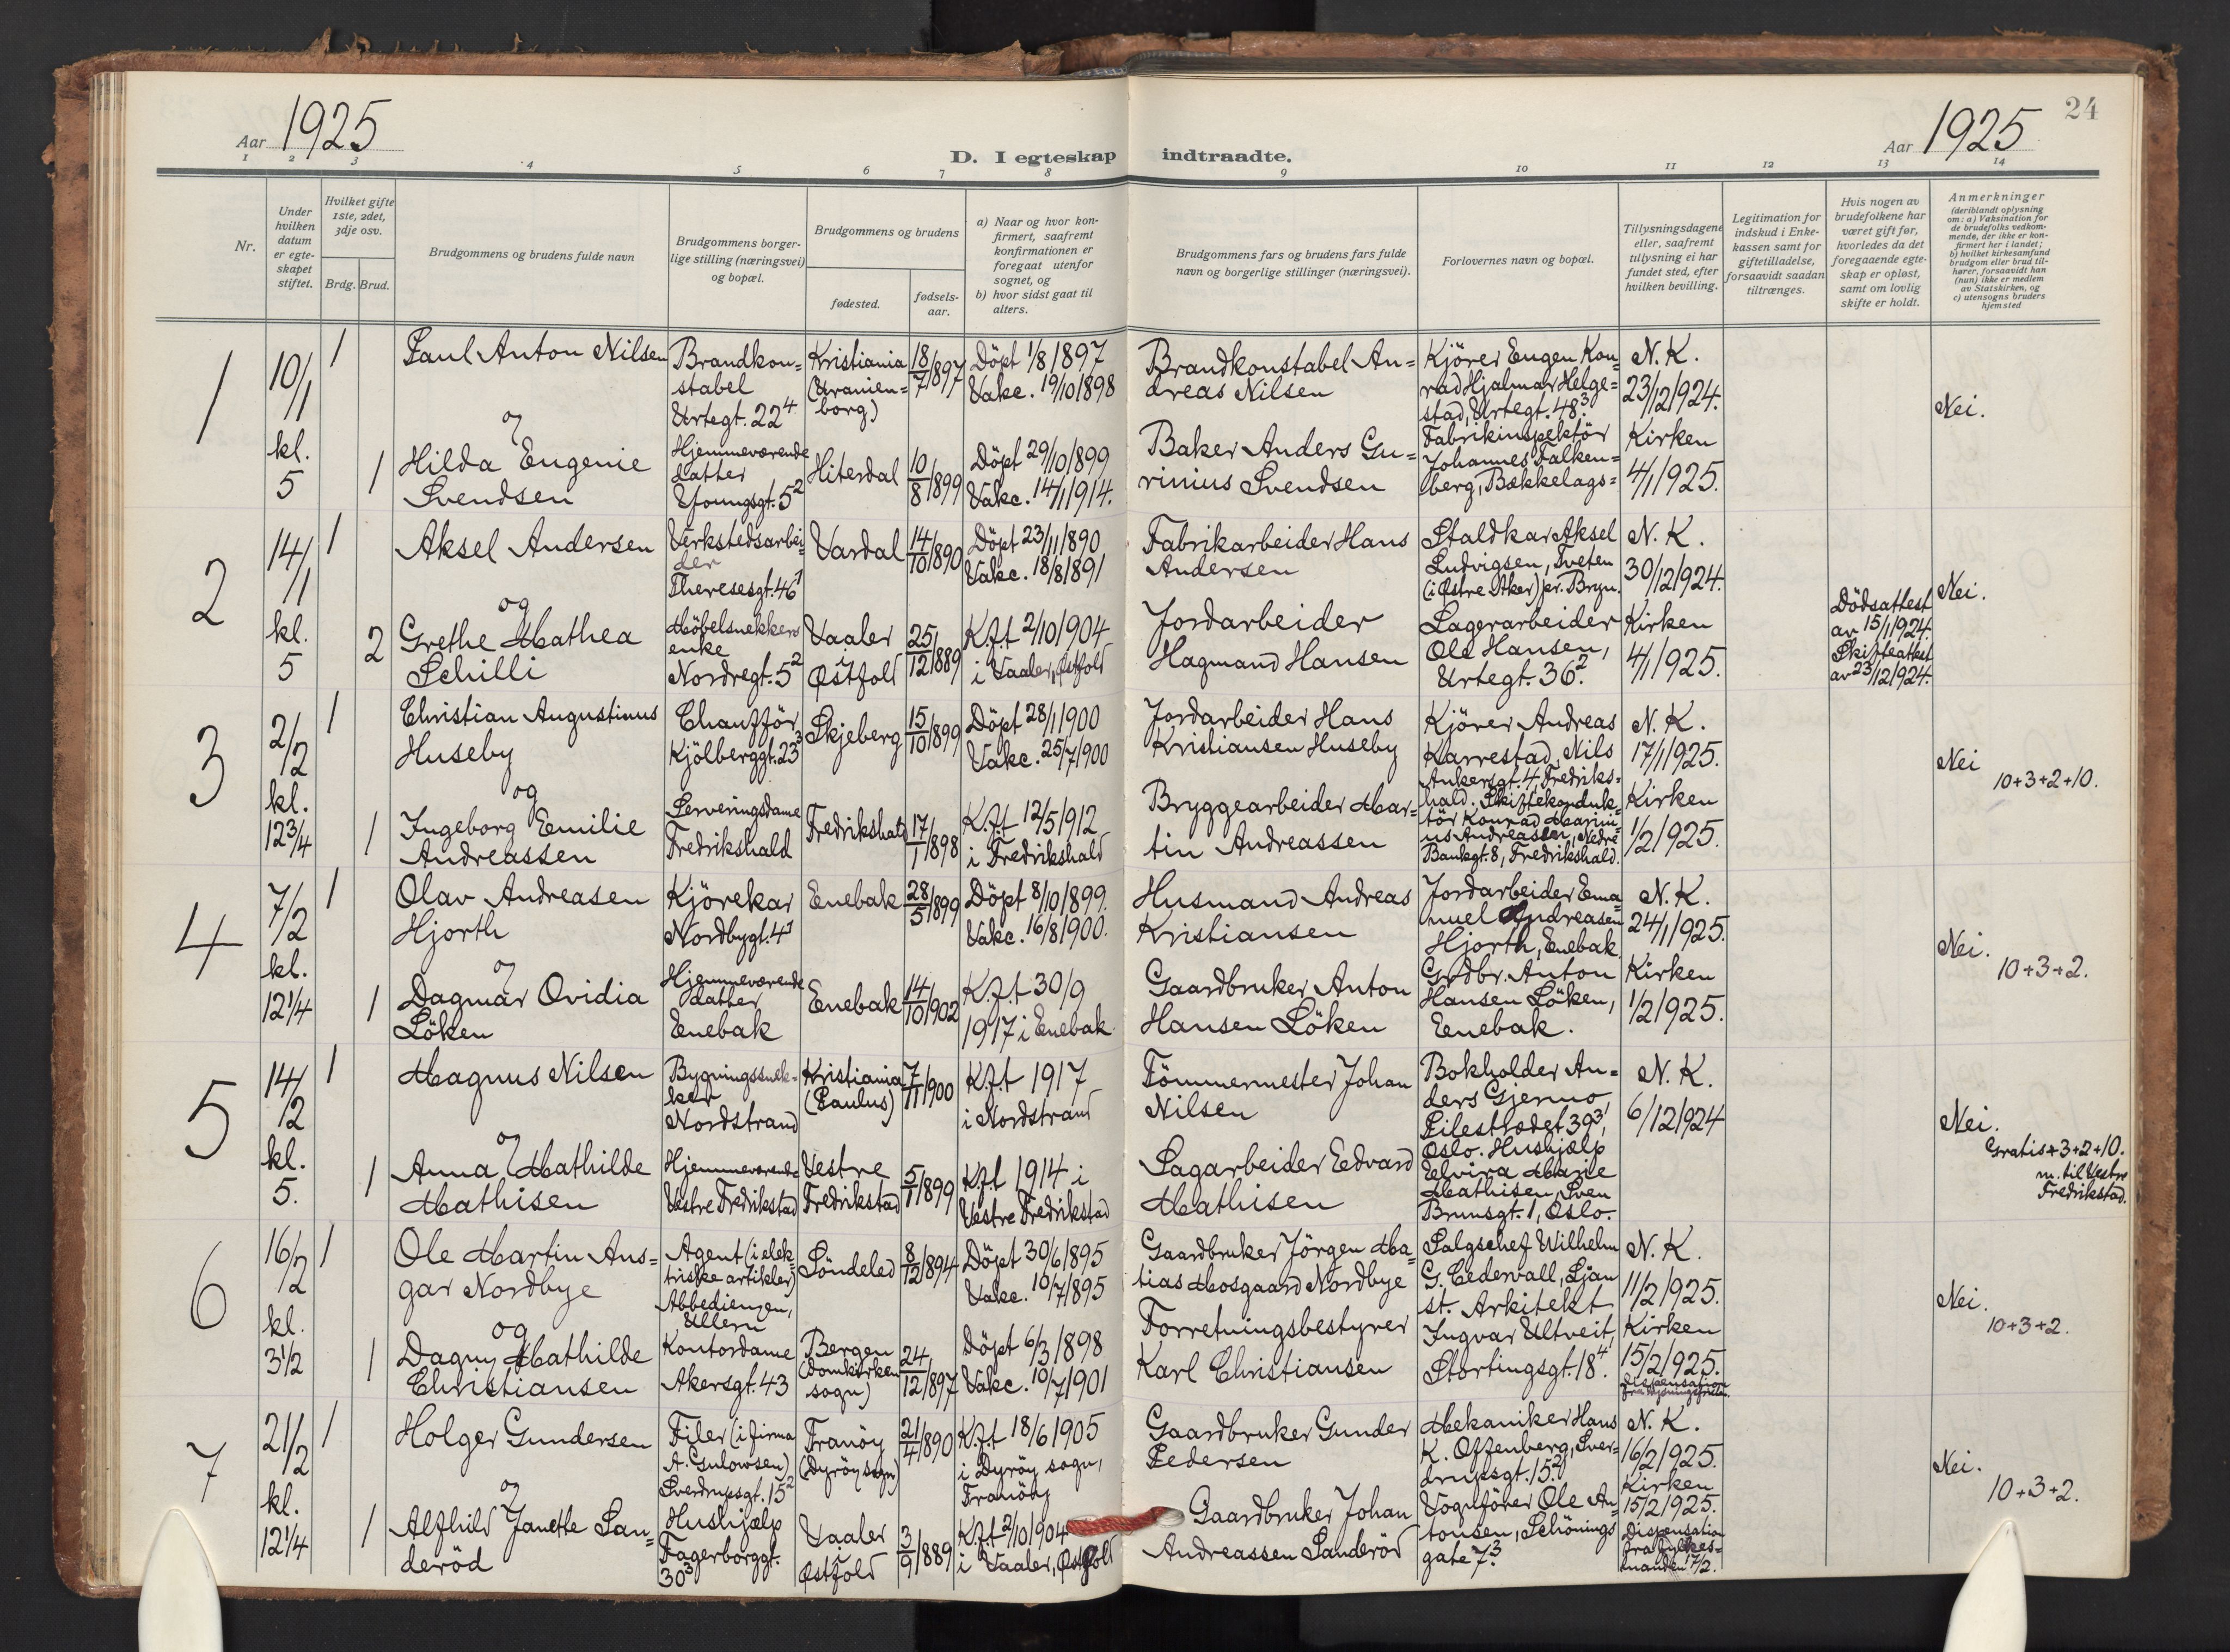 24
Aar 1925
Aar 1925
D. I egteskap indtraadte.
1 2 3 4 5 6 7 8 9 10 11 12 13 14
Nr.
Under hvilken datum er egte- skapet stiftet.
Hvilket gifte 1ste, 2det, 3dje osv.
Brdg. Brud.
Brudgommens og brudens fulde navn
Brudgommens borger- lige stilling (næringsvei) og bopæl.
Brudgommens og brudens
fødested.
fødsels- aar.
a) Naar og hvor kon- firmert, saafremt konfirmationen er foregaat utenfor sognet, og
b) hvor sidst gaat til alters.
Brudgommens fars og brudens fars fulde navn og borgerlige stillinger (næringsvei).
Forlovernes navn og bopæl.
Tillysningsdagene eller, saafremt tillysning ei har fundet sted, efter hvilken bevilling.
Legitimation for indskud i Enke- kassen samt for giftetilladelse, forsaavidt saadan tiltrænges.
Hvis nogen av brudefolkene har været gift før, hvorledes da det foregaaende egte- skap er opløst, samt om lovlig skifte er holdt.
Anmerkninger
(deriblandt oplysning om: a) Vaksination for de brudefolks vedkom- mende, der ikke er kon- firmert her i landet; b) hvilket kirkesamfund brudgom eller brud til- hører, forsaavidt han (hun) ikke er medlem av Statskirken, og c) utensogns bruders hjemsted
1
10/1 kl. 5
1
Paul Anton Nilsen
Brandkon= stabel Urtegt. 22⁴
Kristiania (Uranien= borg)
18/7/897
Döpt 1/8/897 Vakc. 19/10/898
Brandkonstabel An= dreas Nilsen
Kjörer Eugen Kon rad Hjalmar Helge= stad, Urtegt. 48³.
N. K. 23/12/924.
Nei.
og
1
Hilda Eugenie Svendsen
Hjemmeværende datter Youngsgt. 5²
Hiterdal
10/8/899
Döpt 29/10/899 Vakc. 14/1/914.
Baker Anders Gu= rinius Svendsen
Fabrikinspektör Johannes Falken= berg, Bækkelags=
Kirken 4/1/925.
2
14/1 kl. 5
1
Aksel Andersen
Verkstedsarbei= der Theresesgt. 46¹
Vardal
14/10/890
Döpt 23/11/890 Vakc. 18/8/891
Fabrikarbeider Hans Andersen
Staldkar Aksel Ludvigsen, Tveten (i Østre Aker) pr. Bryn.
N. K. 30/12/924.
Nei.
og
2
Grethe Mathea Schilli
Möbelsnekkers enke Nordregt. 5²
Vaaler i Østfold
25/12/889
K.f.t 2/10/904 i Vaaler, Østfold
Jordarbeider Hagmand Hansen
Lagerarbeider Ole Hansen, Urtegt. 36².
Kirken 4/1/925.
Dödsattest av 15/1/924. Skifteattest av 23/12/924.
3
2/2 kl. 12¾
1
Christian Augustinus Huseby
Chaufför Kjölberggt. 23³
Skjeberg
15/10/899
Döpt 28/1/900 Vakc. 25/7/900
Jordarbeider Hans Kristiansen Huseby
Kjörer Andreas Karrestad, Nils Ankersgt. 4, Fredriks= hald. Skiftekonduk= tör Konrad Marini= us Andreassen, Nedre Bankgt. 8, Fredrikshald.
N. K. 17/1/925.
Nei
10+3+2+10.
og
1
Ingeborg Emilie Andreassen
Serveringsdame Fredrikshald
Fredrikshald
17/1/898
K.f.t 12/5/912 i Fredrikshald
Bryggearbeider Mar= tin Andreassen
Kirken 1/2/925.
4
7/2 kl. 12¼
1
Olav Andreasen Hjorth
Kjörekar Nordbygt. 4¹
Enebak
28/5/899
Döpt 8/10/899. Vakc. 16/8/900.
Husmand Andreas Kristiansen
Jordarbeider Ema= nuel Andreasen Hjorth, Enebak
N. K. 24/1/925.
Nei.
10+3+2.
og
1
Dagmar Ovidia Löken
Hjemmeværende datter Enebak
Enebak
14/10/902
K.f.t 30/9 1917 i Enebak
Gaardbruker Anton Hansen Löken
Grdbr. Anton Hansen Löken, Enebak.
Kirken 1/2/925.
5
14/2 kl. 5.
1
Magnus Nilsen
Bygningssnek= ker Nordstrand
Kristiania (Paulus)
7/11/900
K.f.t 1917 i Nordstrand
Tömmermester Johan Nilsen
Bokholder An= ders Gjermo, Pilestrædet 39³, Oslo. Hushjælp Elvira Marie Mathisen, Sven Brunsgt. 1, Oslo.
N. K. 6/12/924
Nei.
Gratis+3+2+10. m. til Vestre Fredrikstad.
og
1
Anna Mathilde Mathisen
Hjemmeværende Vestre Fredrikstad
Vestre Fredrikstad
5/1/899
K.f.t 1914 i Vestre Fredrikstad
Sagarbeider Edvard Mathisen
6
16/2 kl. 3½
1
Ole Martin Ans= gar Nordbye
Agent (i elek= triske artikler) Abbediengen, Ullern
Söndeled
8/12/894
Döpt 30/6/895 Vakc. 10/7/895
Gaardbruker Jörgen Ma= tias Mosgaard Nordbye
Salgschef Wilhelm G. Cedervall, Ljan st. Arkitekt Ingvar Ultveit, Stortingsgt. 18⁴.
N. K. 11/2/925.
Nei.
10+3+2.
og
1
Dagny Mathilde Christiansen
Kontordame Akersgt. 43
Bergen (Domkirken sogn)
24/12/897
Döpt 6/3/898 Vakc. 10/7/901
Forretningsbestyrer Karl Christiansen
Kirken 15/2/925. Dispensation
7
21/2 kl. 12¼
1
Holger Gundersen
Filer (i firma A. Gulowsen) Sverdrupsgt. 15²
Tranöy (Dyröy sogn)
21/4/890
K.f.t 18/6/905 i Dyröy sogn, Tranöy
Gaardbruker Gunder Pedersen
Mekaniker Hans K. Offenberg, Sver= drupsgt. 15².
N. K. 16/2/925.
Nei.
10+3+2.
og
1
Alfhild Janette San= deröd
Hushjælp Fagerborggt. 30³
Vaaler i Østfold
3/9/889
K.f.t 2/10/904 i Vaaler, Østfold
Gaardbruker Johan Andreassen Sanderöd
Vognförer Ole An= tonsen, Schönings gate 7³.
Kirken 15/2/925. Dispensation fra fylkes= manden 17/2.